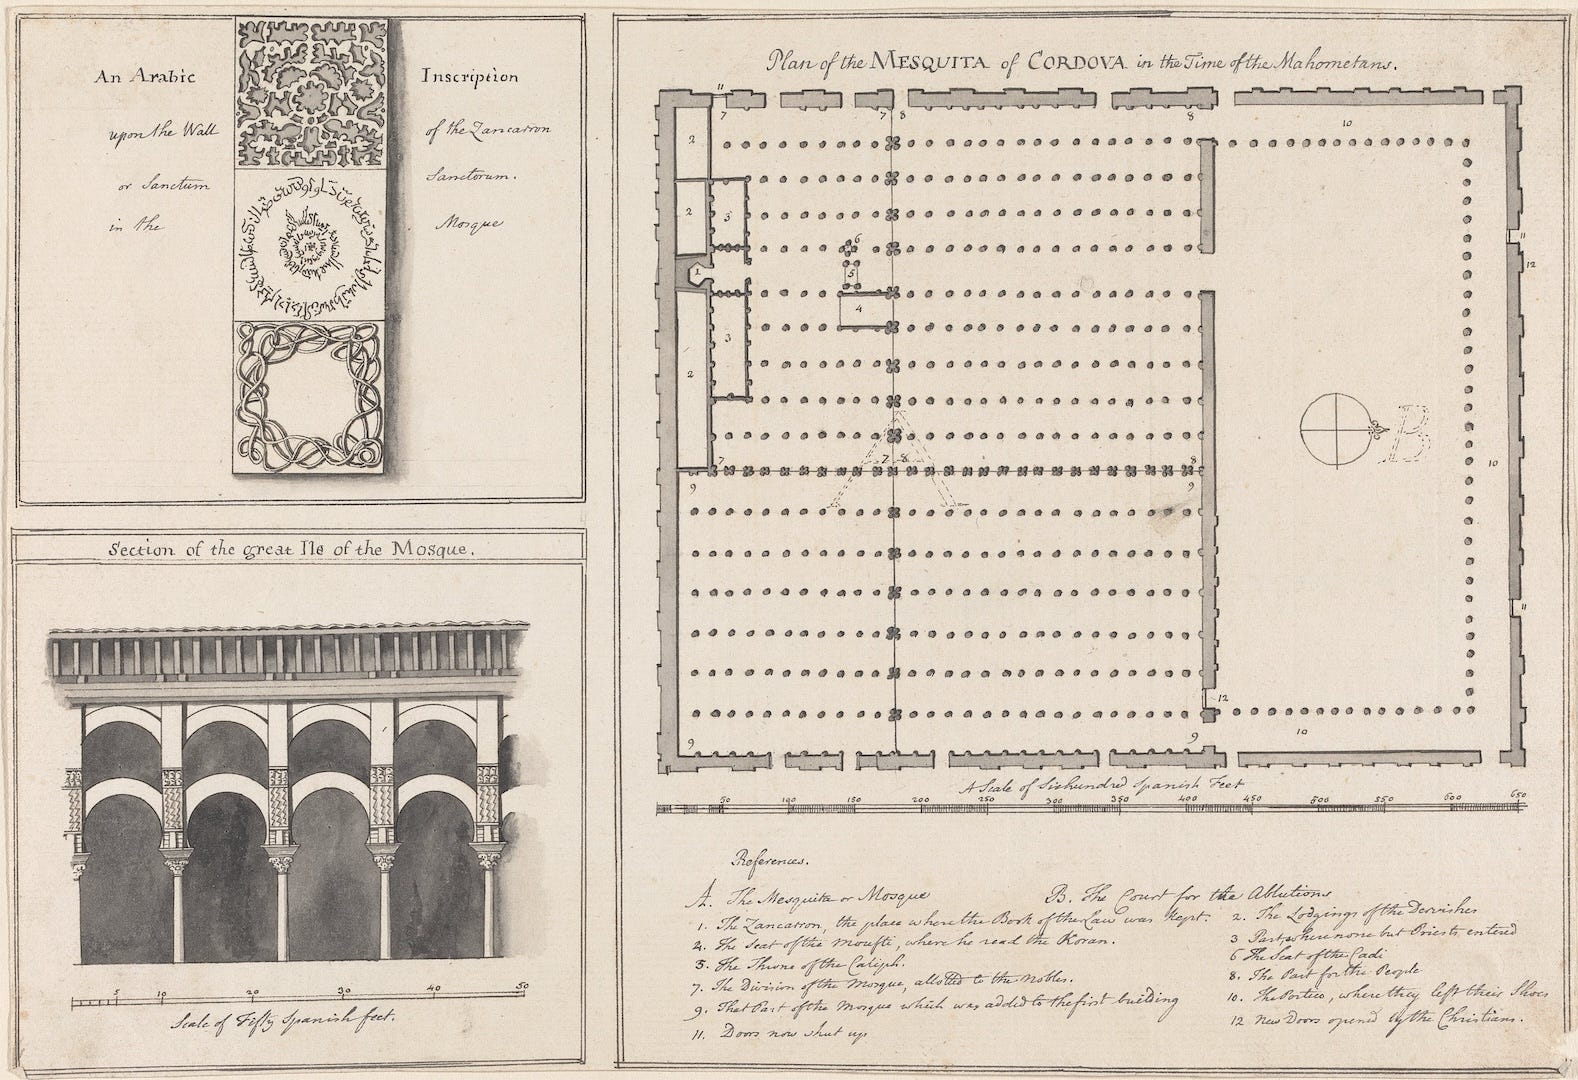 An Arabic Inscription
upon the Wall of the Zancarron
or Sanctum Sanctorum.
in the Mosque
Section of the great Ile of the Mosque.
5 10 20 30 40 50
Scale of Fifty Spanish feet.
Plan of the MESQUITA of CORDOVA in the Time of the Mahometans.
11
7 7 8 8
10
2
2
3
6
5
1
4
3
2
11
12
7 7 8 8
9 9
10
11
12
9 9
10
A Scale of Sixhundred Spanish Feet
50 100 150 200 250 300 350 400 450 500 550 600 650
References.
A. The Mesquita or Mosque
B. The Court for the Ablutions
1. The Zancarron, the place where the Book of the Law was Kept.
2. The Lodgings of the Dervishes
3 Part, where none but Priests entered
4. The Seat of the Moufti, where he read the Koran.
5. The Throne of the Caliph.
6 The Seat of the Cadi
7. The Division of the Mosque, allotted to the Nobles.
8. The Part for the People
9. That Part of the Mosque which was added to the first building
10. The Portico, where they left their Shoes
11. Doors now shut up
12 New Doors opened by the Christians.